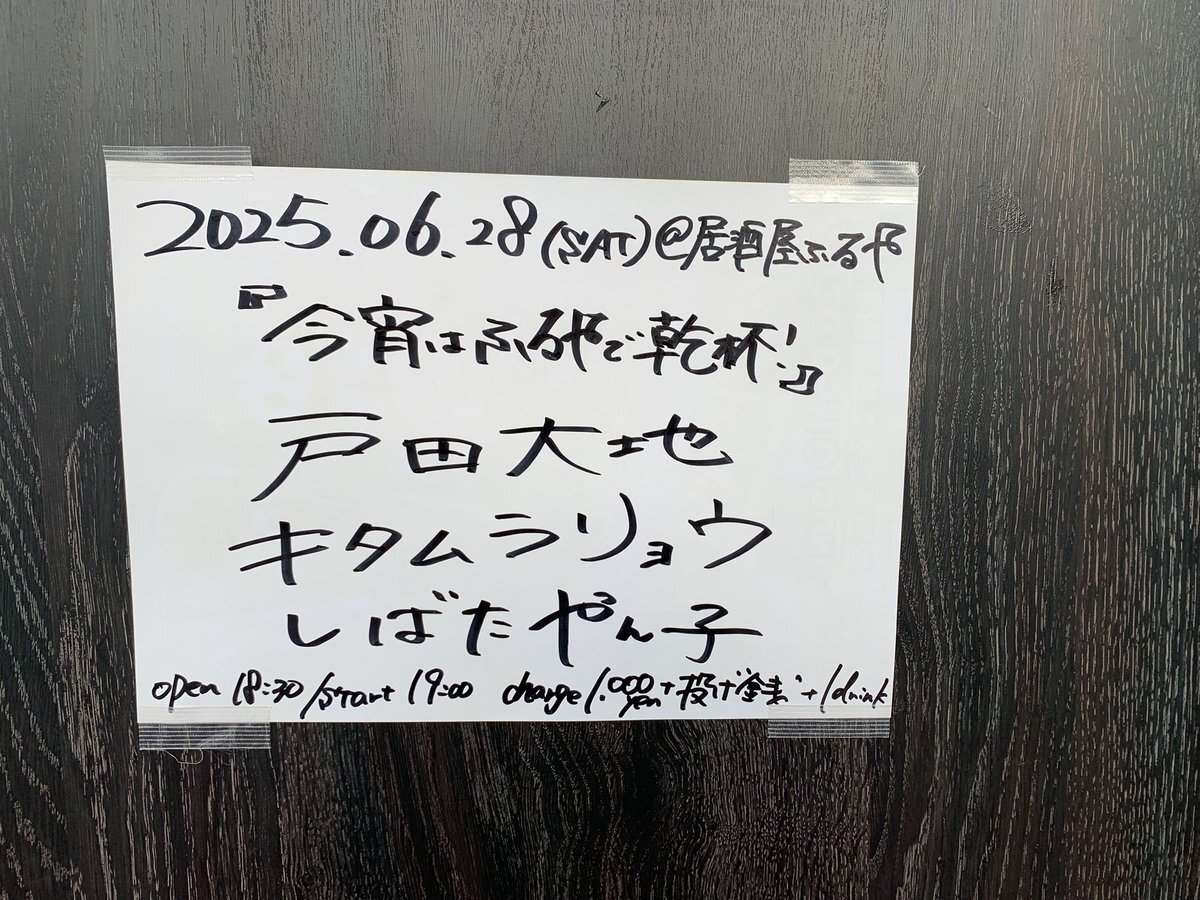 2025.06.28(SAT)@居酒屋ふるや
『今宵はふるやで乾杯!』
戸田大地
キタムラリョウ
しばたやん子
open 18:30/start 19:00 charge 1.000yen+投げ銭+1drink